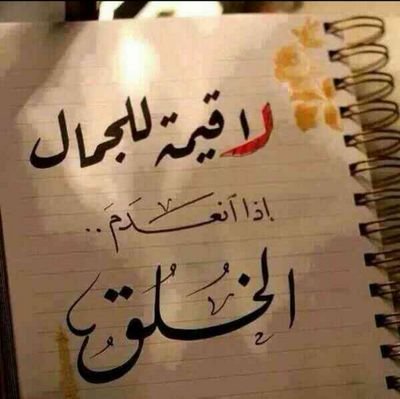 لا قيمة للجمال
إذا آنعدَمَ..
الخُلُق